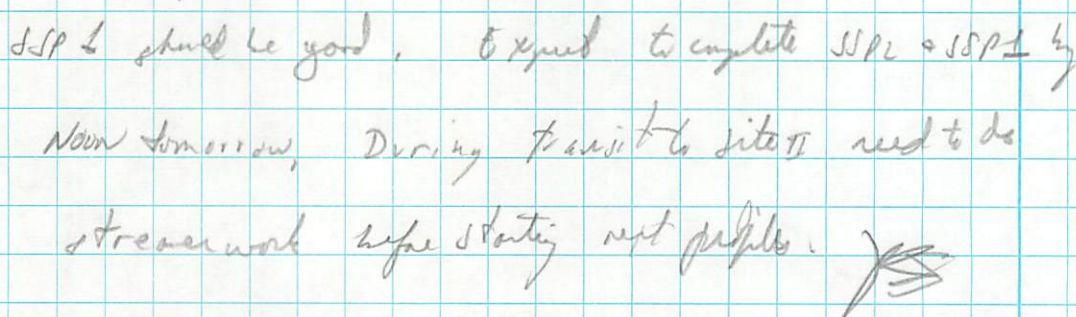 SSP 1 should be good. Expect to complete SSP2 & SSP1 by
Noon tomorrow. During transit to site II need to do
streamer work before starting next profiles.